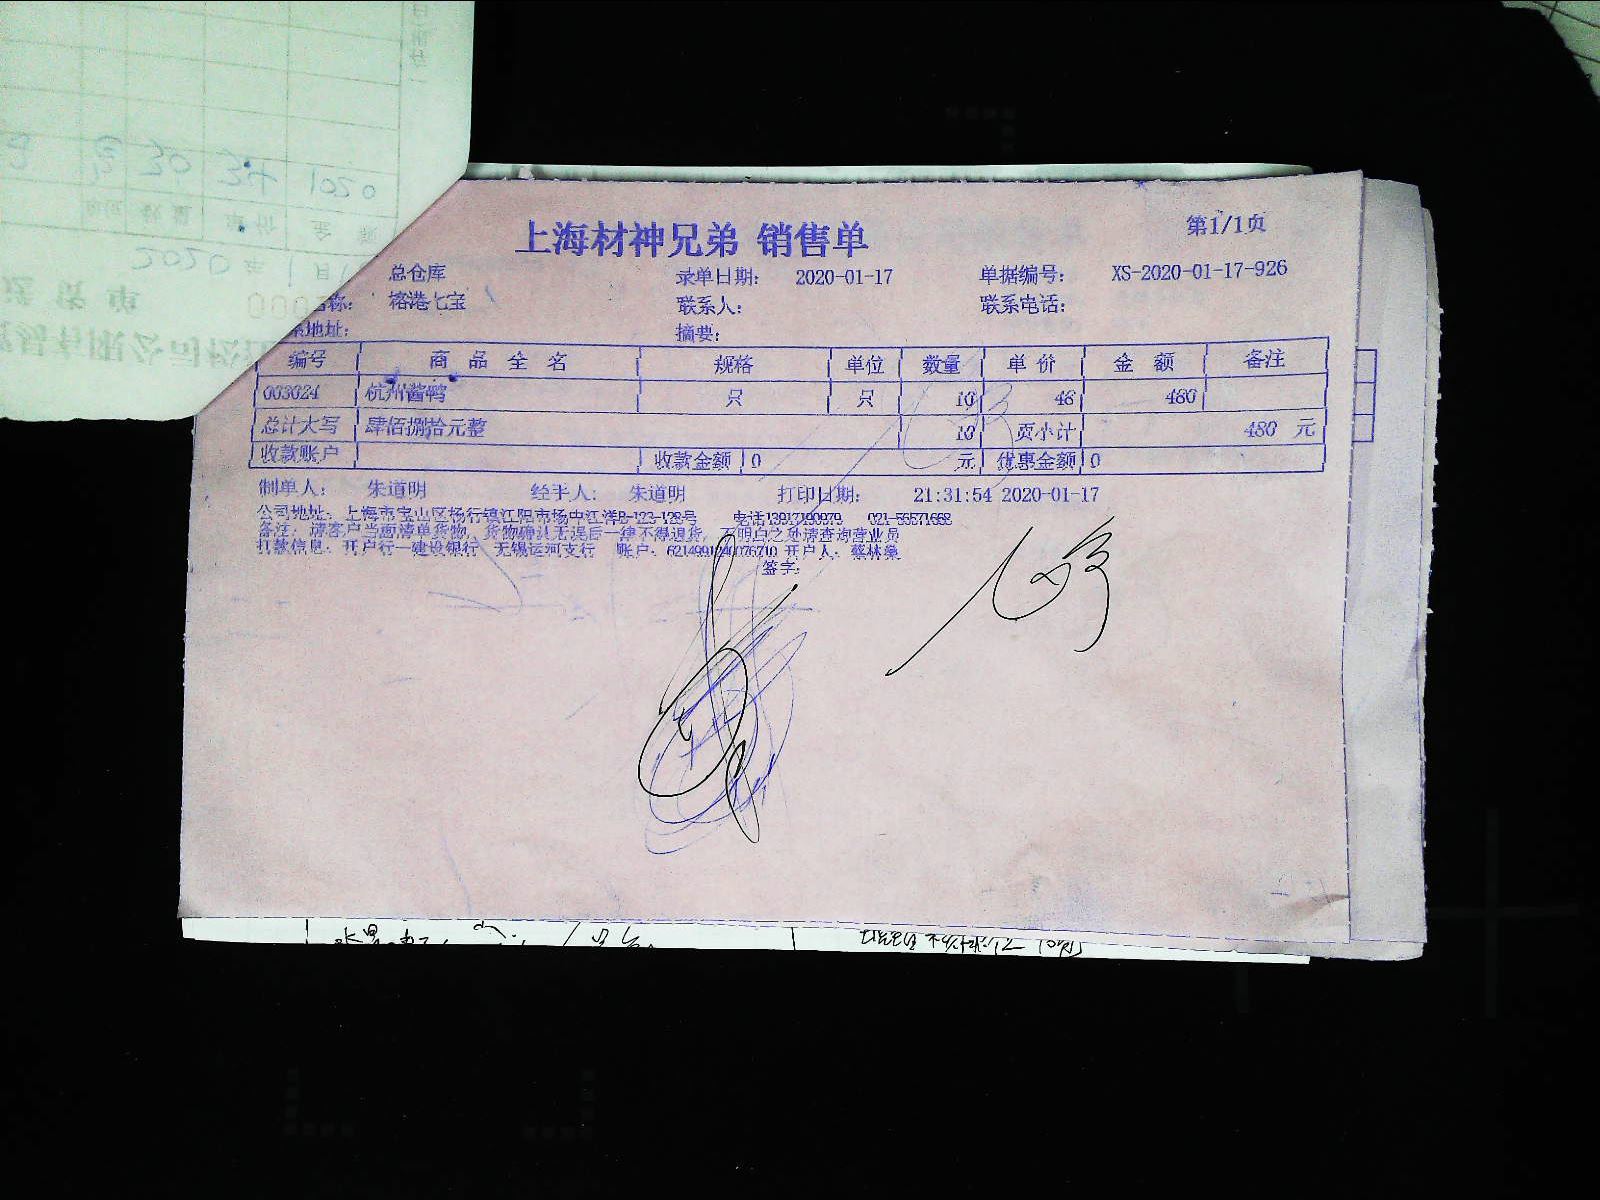 上海材神兄弟 销售单
第1/1页
总仓库 录单日期: 2020-01-17 单据编号: XS-2020-01-17-926
名称: 榕港七宝 联系人: 联系电话:
系地址: 摘要:
编号 商品全名 规格 单位 数量 单价 金额 备注
003024 杭州酱鸭 只 只 10 48 480
总计大写 肆佰捌拾元整 10 页小计 480 元
收款账户 收款金额 0 元 优惠金额 0
制单人: 朱道明 经手人: 朱道明 打印日期: 21:31:54 2020-01-17
公司地址: 上海市宝山区杨行镇江阳市场中江洋B-123-128号 电话13917190979 021-56571668
备注: 请客户当面清单货物, 货物确认无误后一律不得退货, 不明白之处请查询营业员
打款信息: 开户行—建设银行 无锡运河支行 账户: 6214991240076710 开户人: 蔡林燊
签字:
30 34 1020
数量 单价 金 额
2020年1月
送货单